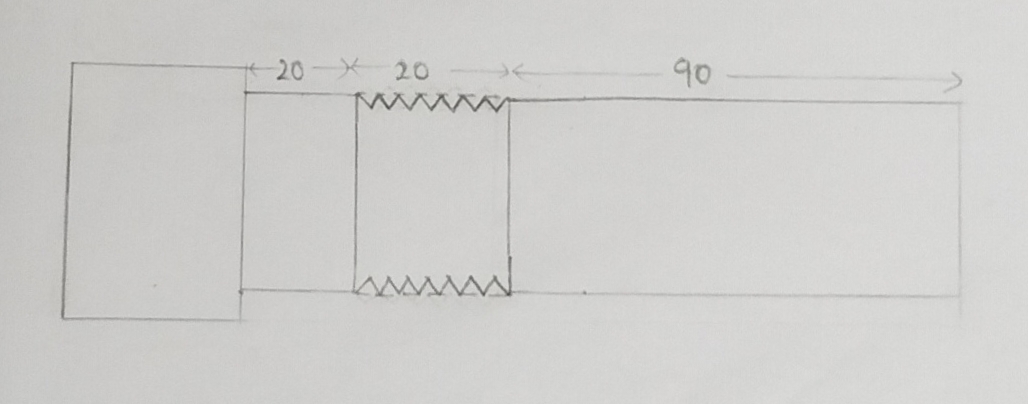 20 20 90